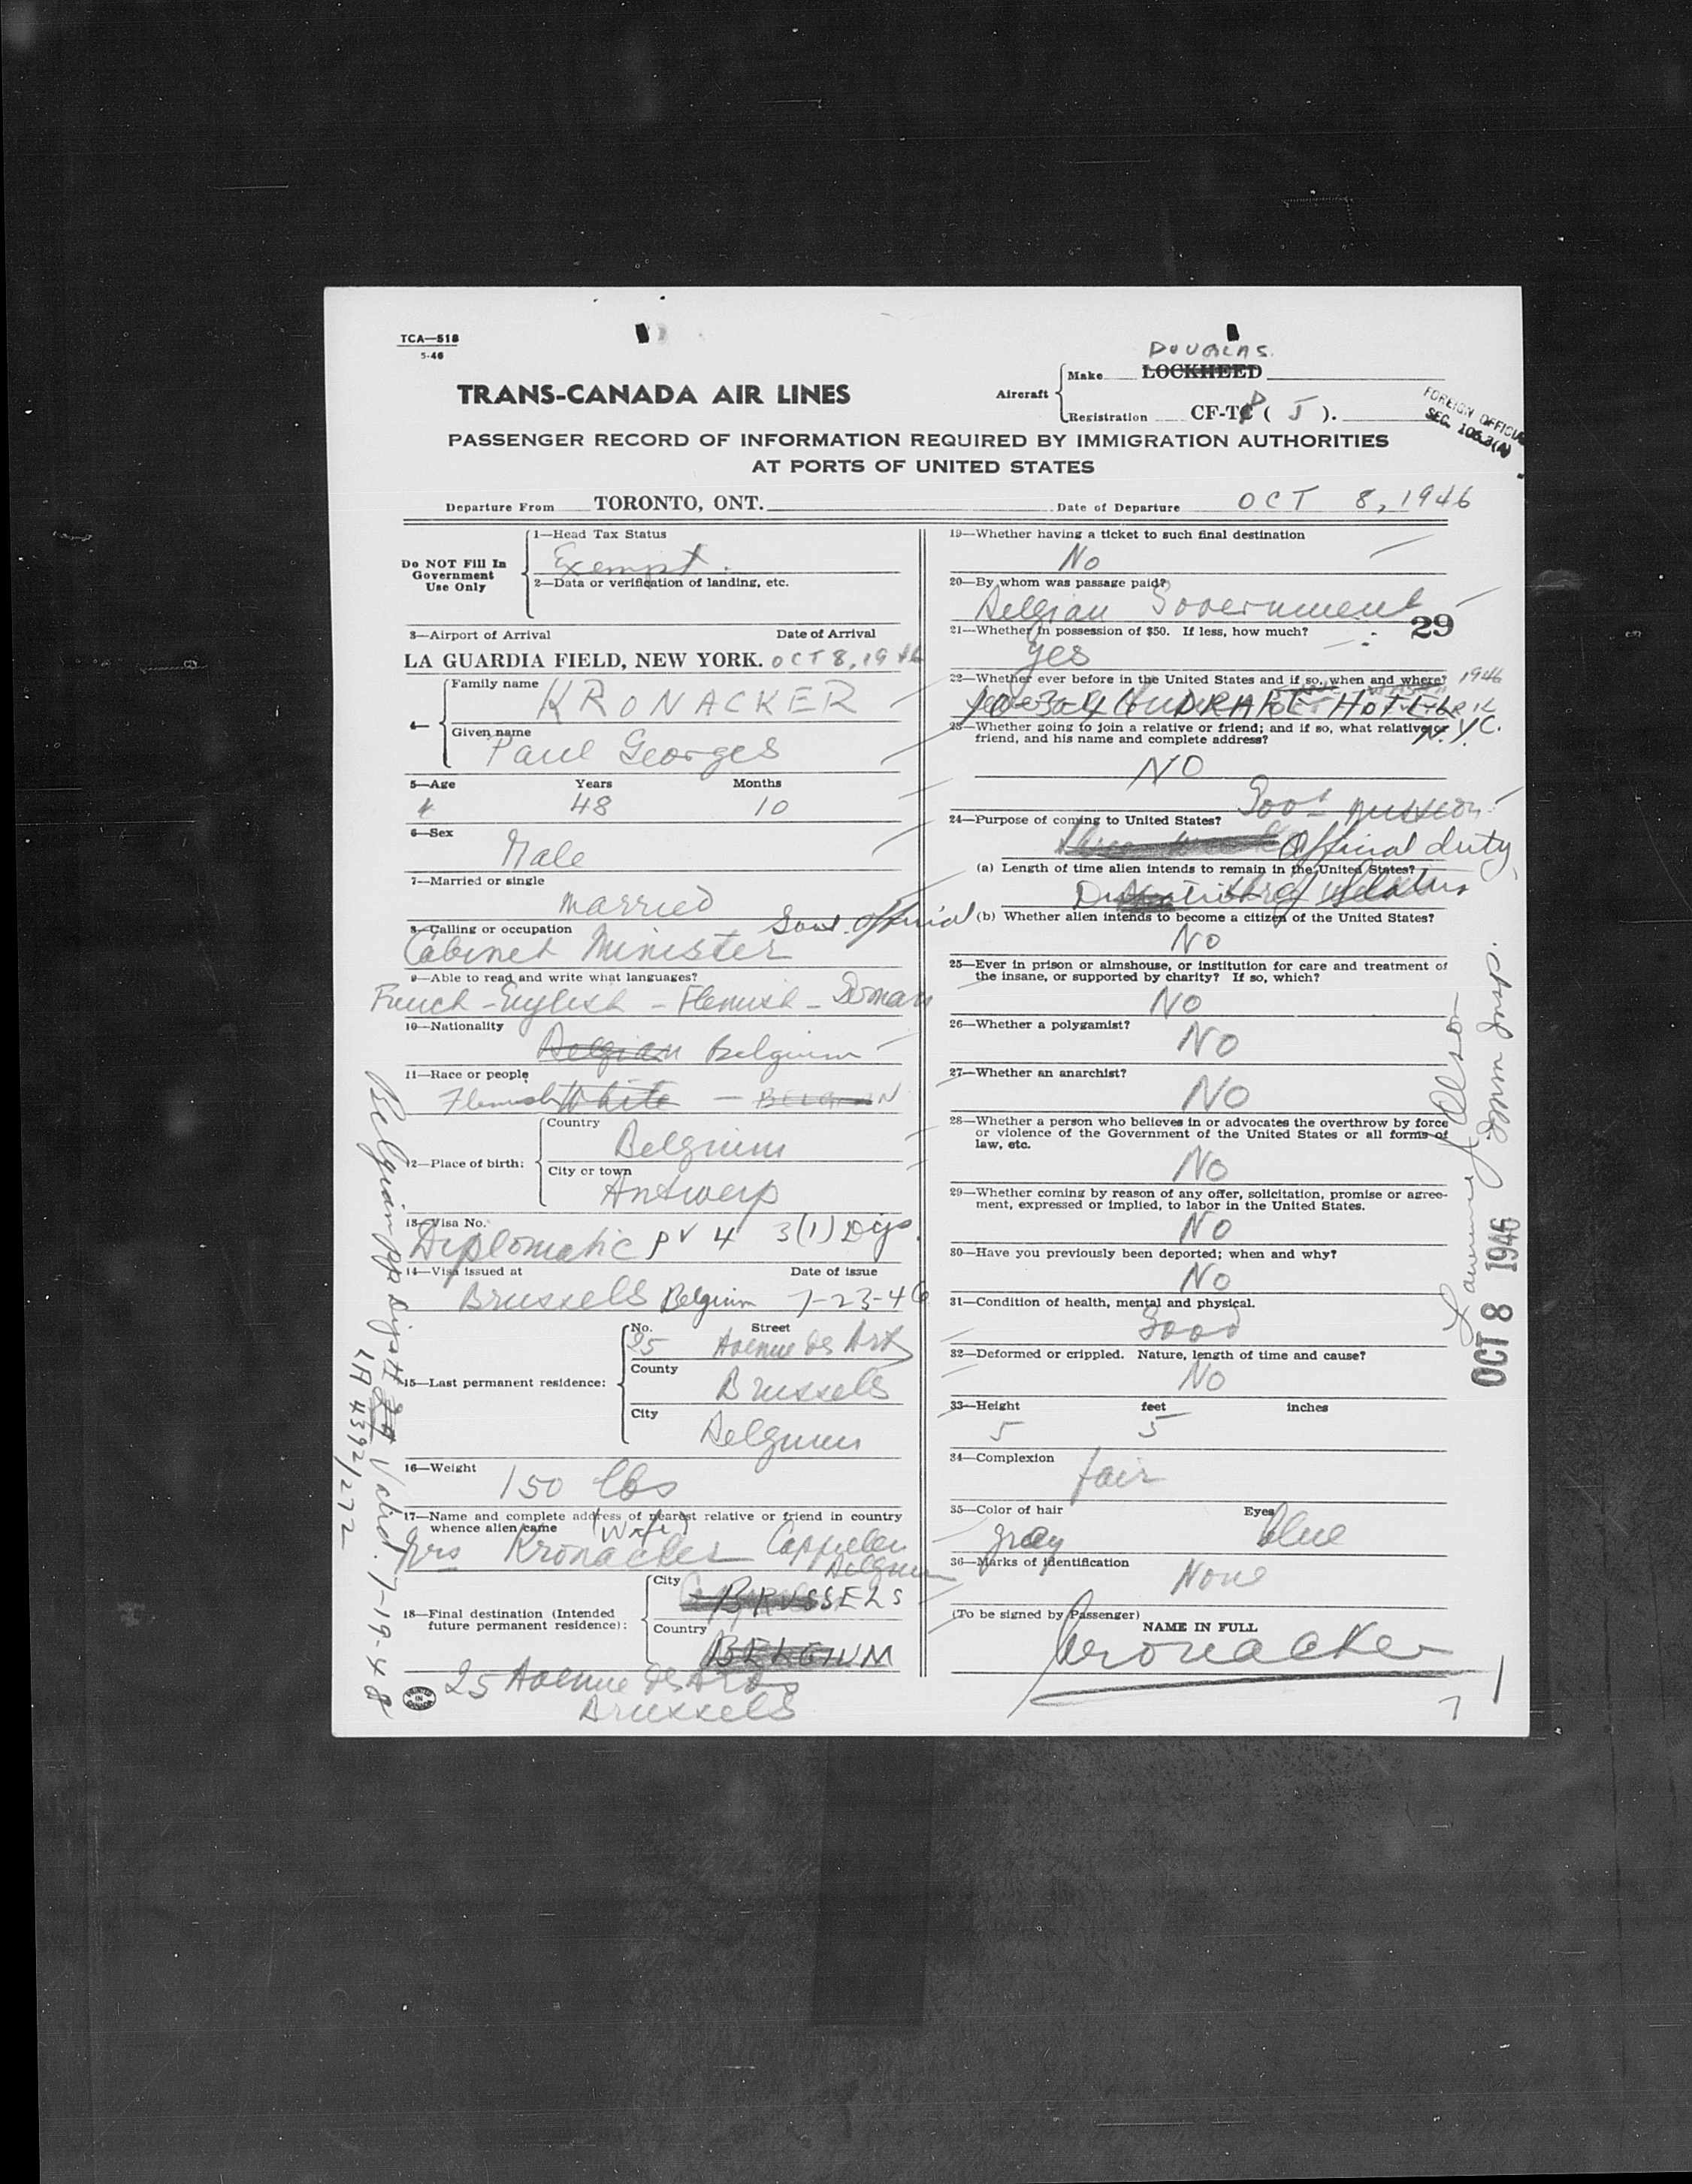 TCA—518
5-46
DOUGLAS
Aircraft Make LOCKHEED
TRANS-CANADA AIR LINES
Registration CF-T ( J ).
FOREIGN OFFICIAL
SEC. 106.3(4)
PASSENGER RECORD OF INFORMATION REQUIRED BY IMMIGRATION AUTHORITIES
AT PORTS OF UNITED STATES
Departure From TORONTO, ONT. Date of Departure OCT 8, 1946
Do NOT Fill In
Government
Use Only
1—Head Tax Status
Exempt.
2—Data or verification of landing, etc.
3—Airport of Arrival Date of Arrival
LA GUARDIA FIELD, NEW YORK. OCT 8, 1946
4—
Family name KRONACKER
Given name
Paul Georges
5—Age Years Months
48 10
6—Sex
Male
7—Married or single
married
8—Calling or occupation Govt. Official
Cabinet Minister
9—Able to read and write what languages?
French - English - Flemish - German
10—Nationality
Belgian Belgium
11—Race or people
Flemish White — BELGIAN
12—Place of birth:
Country
Belgium
City or town
Antwerp
13—Visa No.
Diplomatic PV 4 3(1) Dip.
14—Visa issued at Date of issue
Brussels Belgium 7-23-46
15—Last permanent residence:
No. Street
25 Avenue des Arts
County
Brussels
City
Belgium
16—Weight
150 lbs
17—Name and complete address of nearest relative or friend in country
whence alien came (Wife)
Mrs Kronacker Cappellen
Belgium
18—Final destination (Intended
future permanent residence):
City
BRUSSELS
Country
BELGIUM
25 Avenue des Arts
Brussels
PRINTED IN CANADA
Belgian pp Dip # 24 Valid. 7-19-48
LA 4392/272
19—Whether having a ticket to such final destination
No
20—By whom was passage paid?
Belgian Government
29
21—Whether in possession of $50. If less, how much?
yes
22—Whether ever before in the United States and if so, when and where? 1946
DRAKE HOTEL
N.Y.C.
23—Whether going to join a relative or friend; and if so, what relative or
friend, and his name and complete address?
NO
Govt mission
24—Purpose of coming to United States?
Official duty
(a) Length of time alien intends to remain in the United States?
Duration of Status
(b) Whether alien intends to become a citizen of the United States?
No
25—Ever in prison or almshouse, or institution for care and treatment of
the insane, or supported by charity? If so, which?
No
26—Whether a polygamist?
No
27—Whether an anarchist?
No
28—Whether a person who believes in or advocates the overthrow by force
or violence of the Government of the United States or all forms of
law, etc.
No
29—Whether coming by reason of any offer, solicitation, promise or agree-
ment, expressed or implied, to labor in the United States.
No
30—Have you previously been deported; when and why?
No
31—Condition of health, mental and physical.
Good
32—Deformed or crippled. Nature, length of time and cause?
No
33—Height feet inches
5 5
34—Complexion
fair
35—Color of hair Eyes
gray blue
36—Marks of identification
None
(To be signed by Passenger)
NAME IN FULL
Kronacker
OCT 8 1946
Immig. Insp.